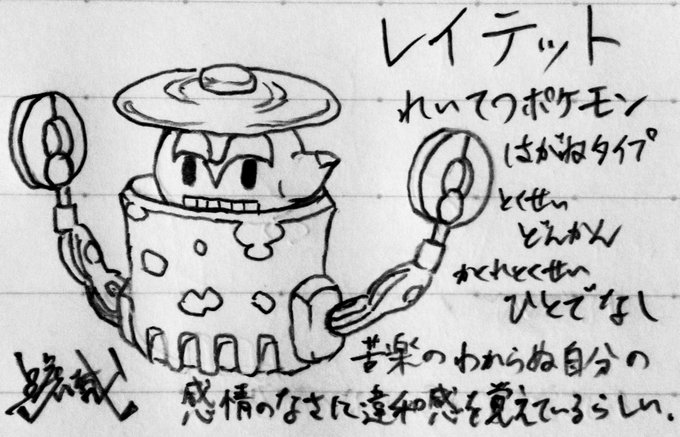 レイテット
れいてつポケモン
はがねタイプ
とくせい
どんかん
かくれとくせい
ひとでなし
苦楽のわからぬ自分の
感情のなさに違和感を覚えているらしい.